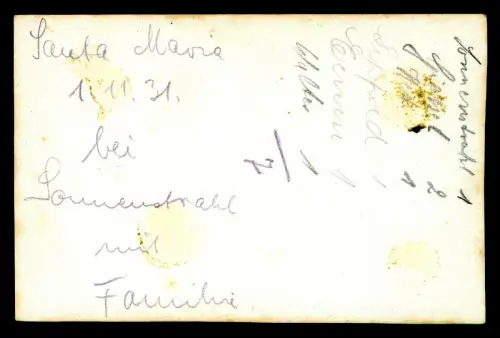 Santa Maria
1. 11. 31.
bei
Sonnenstrahl
mit
Familie
/7
Sonnenstrahl 1
2
1
1
Walter 1